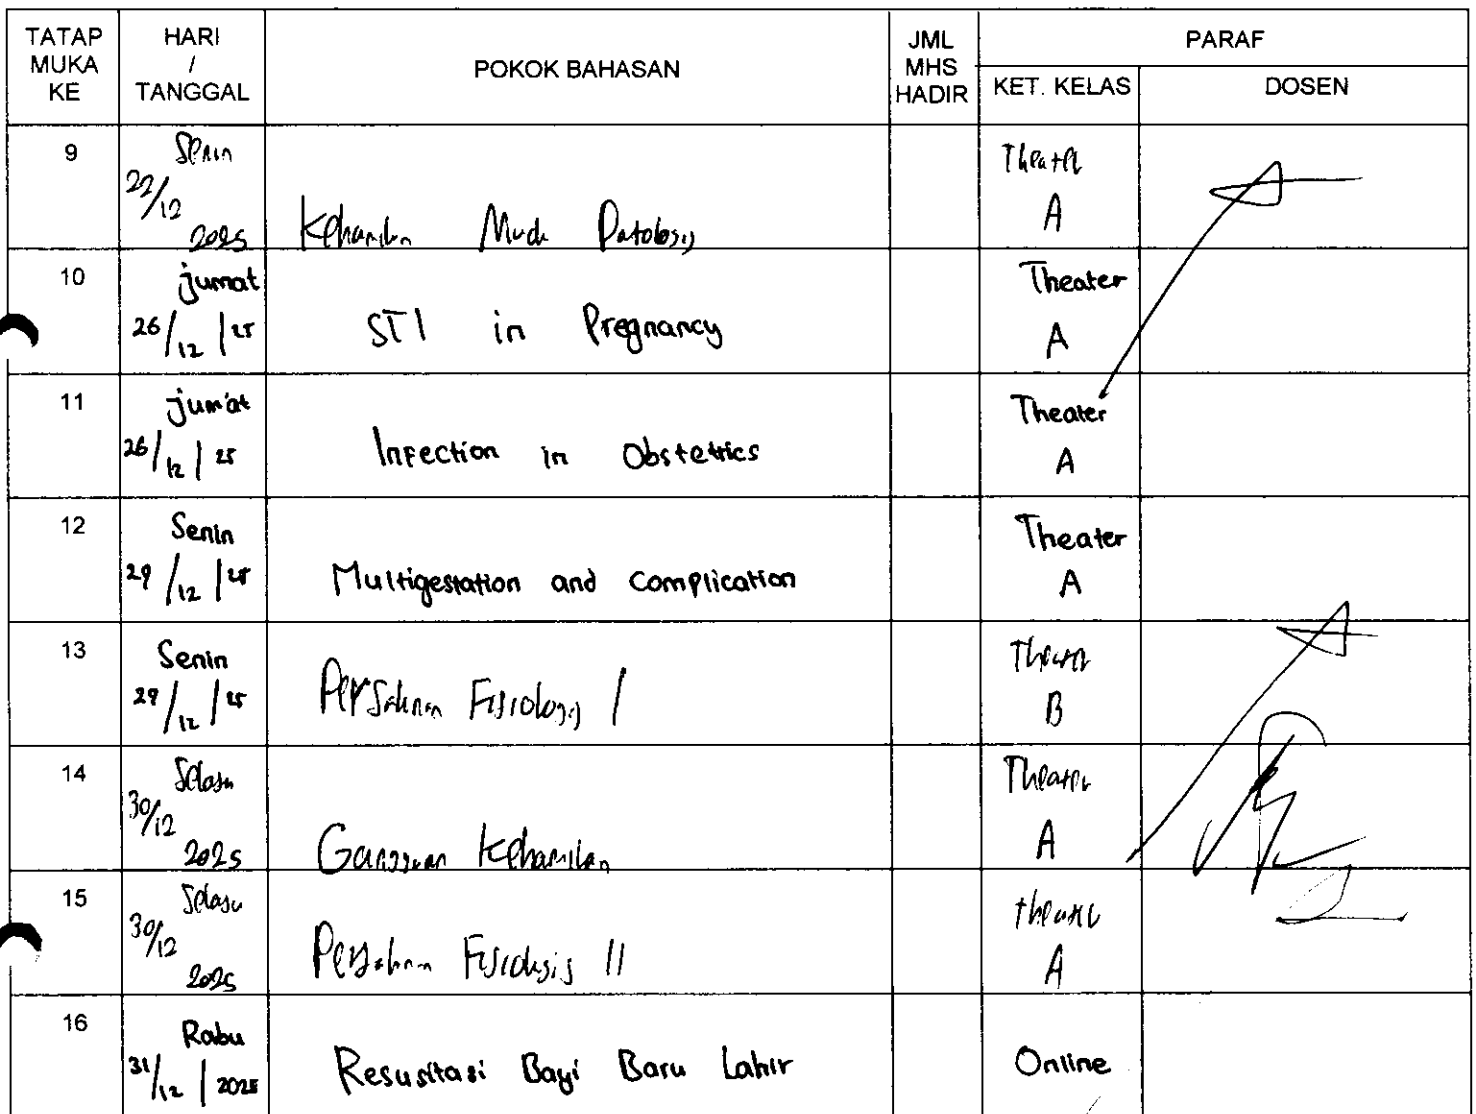 TATAP MUKA KE
HARI / TANGGAL
POKOK BAHASAN
JML MHS HADIR
PARAF
KET. KELAS
DOSEN
9
Senin
22/12 2025
Kehamilan Muda Patologis
Theater
A
10
jumat
26/12/25
STI in Pregnancy
Theater
A
11
jum'at
26/12/25
Infection in Obstetrics
Theater
A
12
Senin
29/12/25
Multigestation and complication
Theater
A
13
Senin
29/12/25
Persalinan Fisiologis I
Theater
B
14
Selasa
30/12 2025
Gangguan Kehamilan
Theater
A
15
Selasa
30/12 2025
Persalinan Fisiologis II
theater
A
16
Rabu
31/12/2025
Resusitasi Bayi Baru Lahir
Online